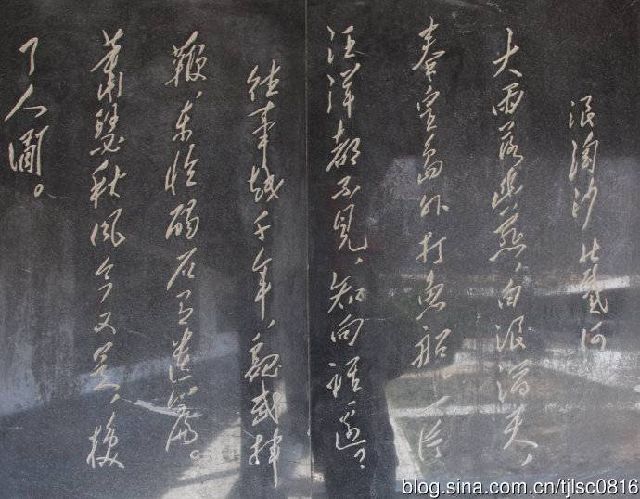 浪淘沙 北戴河
大雨落幽燕，白浪滔天，
秦皇島外打魚船，一片
汪洋都不見，知向誰邊？
往事越千年，魏武揮
鞭，東臨碣石有遺篇。
蕭瑟秋風今又是，換
了人間。
blog.sina.com.cn/tjlsc0816